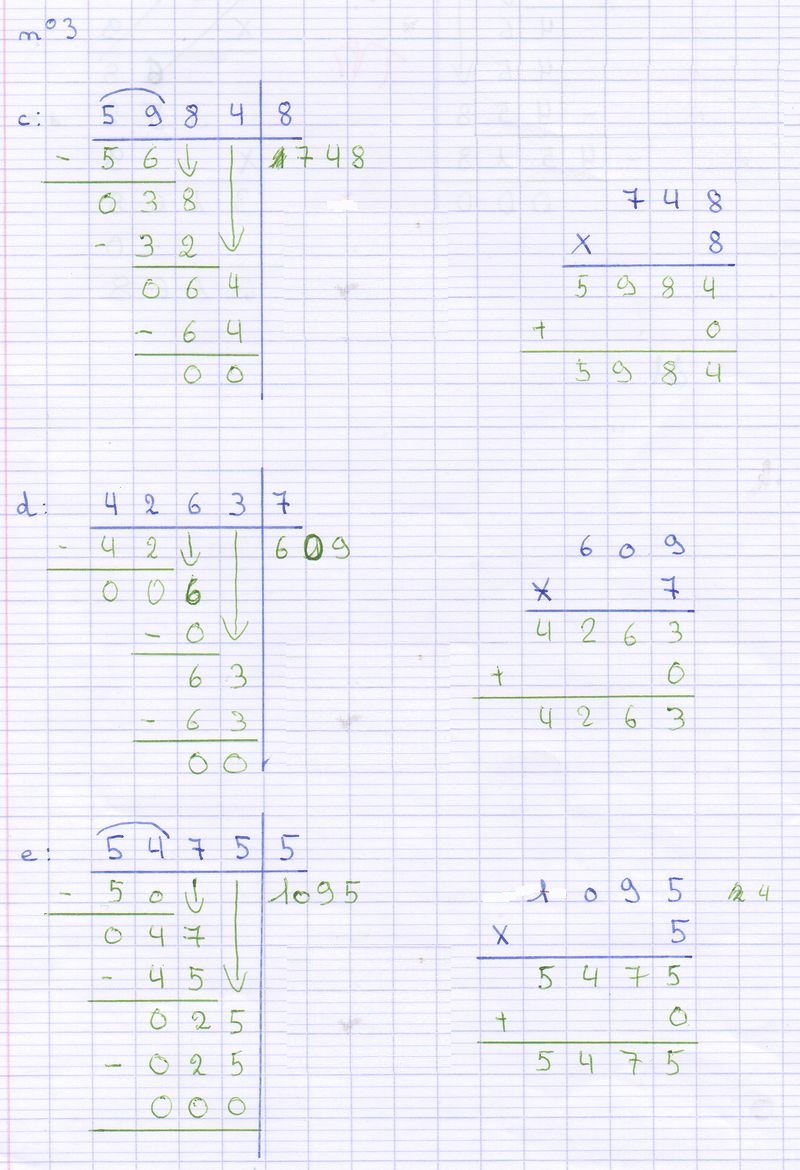 n°3
c: 5 9 8 4 8
- 5 6 748
0 3 8
- 3 2
0 6 4
- 6 4
0 0
7 4 8
X 8
5 9 8 4
+ 0
5 9 8 4
d: 4 2 6 3 7
- 4 2 6 0 9
0 0 6
- 0
6 3
- 6 3
0 0
6 0 9
X 7
4 2 6 3
+ 0
4 2 6 3
e: 5 4 7 5 5
- 5 0 1095
0 4 7
- 4 5
0 2 5
- 0 2 5
0 0 0
1 0 9 5 4
X 5
5 4 7 5
+ 0
5 4 7 5